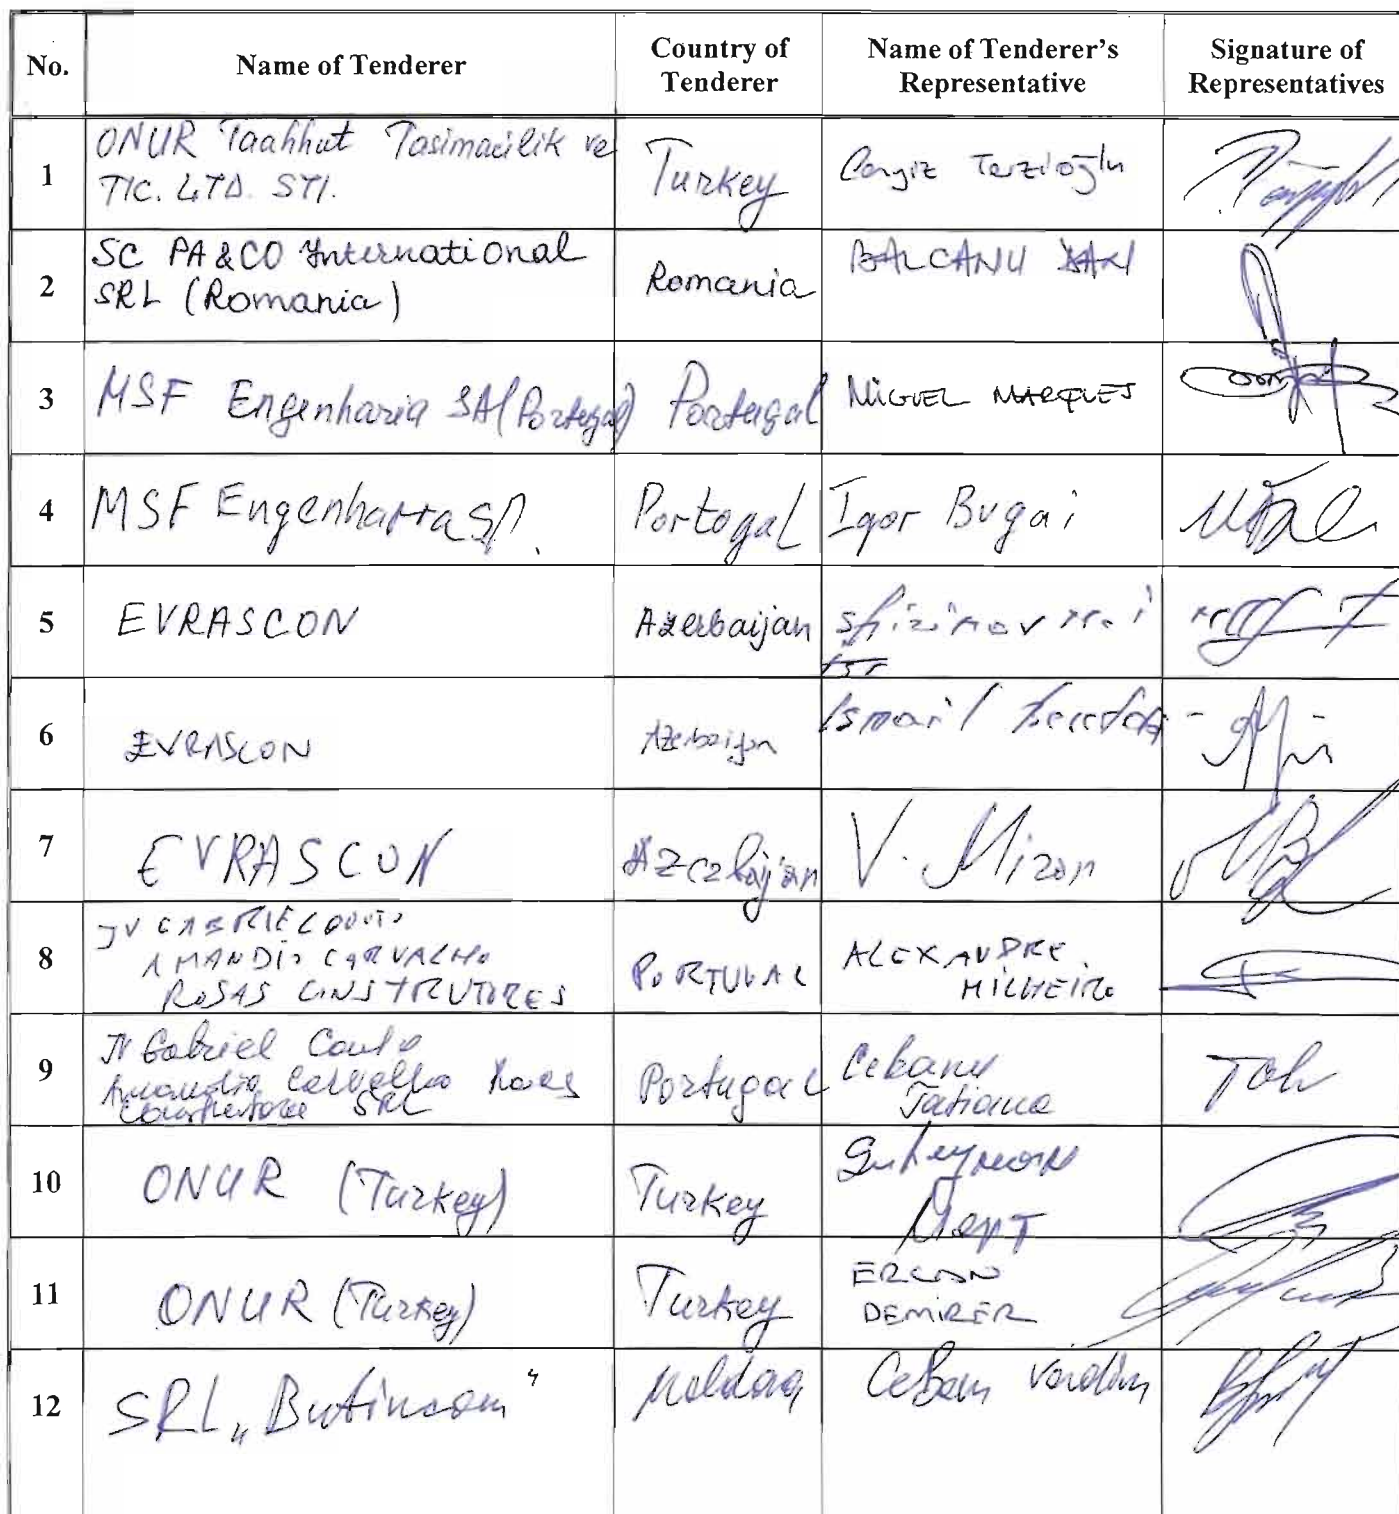 No.
Name of Tenderer
Country of
Tenderer
Name of Tenderer's
Representative
Signature of
Representatives
1
ONUR Taahhut Tasimacilik ve
TIC. LTD. STI.
Turkey
Terzioğlu
2
SC PA&CO International
SRL (Romania)
Romania
BALCANU
3
MSF Engenharia SA (Portugal)
Portugal
MIGUEL MARQUES
4
MSF Engenharia SA.
Portogal
Igor Bugai
5
EVRASCON
Azerbaijan
6
EVRASCON
Azerbaijan
Ismail
7
EVRASCON
Azerbaijan
V. Miron
8
JV GABRIEL COUTO
AMANDIO CARVALHO
ROSAS CONSTRUTORES
PORTUGAL
ALEXANDRE
MILHEIRO
9
JV Gabriel Couto
Amandio Carvalho Rosas
SRL
Portugal
Cebanu
Tatiana
10
ONUR (Turkey)
Turkey
Suleyman
11
ONUR (Turkey)
Turkey
ERCAN
DEMIRER
12
SRL „Butincom"
Moldova
Ceban